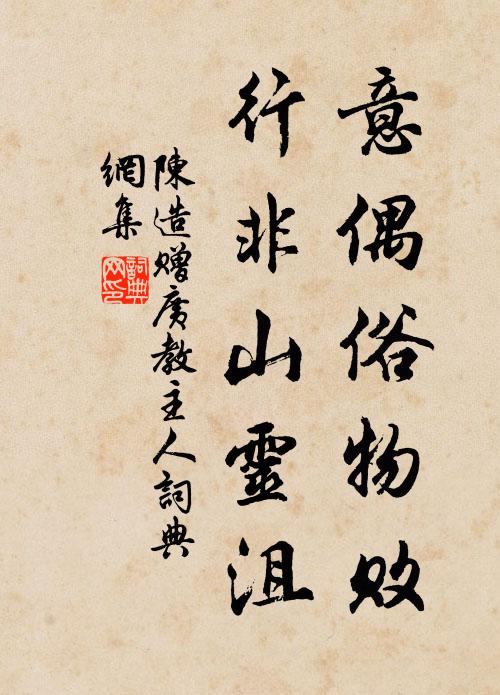 意偶俗物敗
行非山靈沮
陳造贈廣教主人詞典
網集
詞典
网印